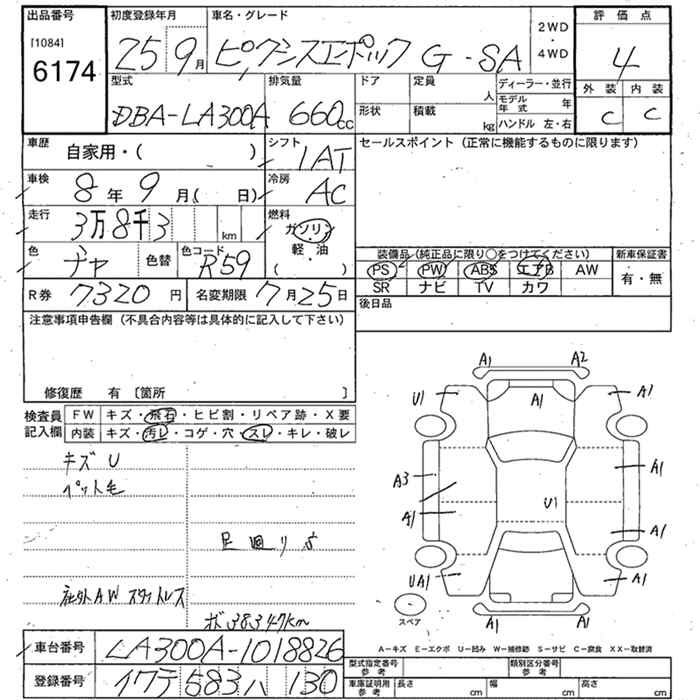 出品番号 初度登録年月 車名・グレード 2WD・4WD 評価点
[1084]
6174 25年9月 ピクシスエポック G-SA 4
型式 排気量 ドア 定員 人 ディーラー・並行 外装 内装
DBA-LA300A 660cc 形状 積載 kg モデル年式 年 C C
ハンドル 左・右
車歴 自家用・( ) シフト IAT セールスポイント(正常に機能するものに限ります)
車検 8年9月( 日) 冷房 AC
走行 3万8千3 km 燃料 ガソリン・軽油
色 チャ 色替 色コード R59 ( ・ )
装備品(純正品に限り○をつけてください) 新車保証書
PS PW ABS エアB AW 有・無
SR ナビ TV カワ
R券 7320円 名変期限 7月25日 後日品
注意事項申告欄(不具合内容等は具体的に記入して下さい)
修復歴 有 〔箇所 〕
検査員記入欄 FW キズ・飛石・ヒビ割・リペア跡・X要
内装 キズ・汚レ・コゲ・穴・スレ・キレ・破レ
キズU
ペット毛
足廻りサ
社外AW スタットレス
ボ38347km
A1 A2
U1 A1 A1
A3 A1
A1 U1
A1
UA1 A1
A1 A1
スペア
A-キズ E-エクボ U-凹み W-補修跡 S-サビ C-腐食 XX-取替済
車台番号 LA300A-1018826
登録番号 イワテ583ハ 130
型式指定番号 参考 類別区分番号 参考
車庫証明用 参考 長さ cm 幅 cm 高さ cm